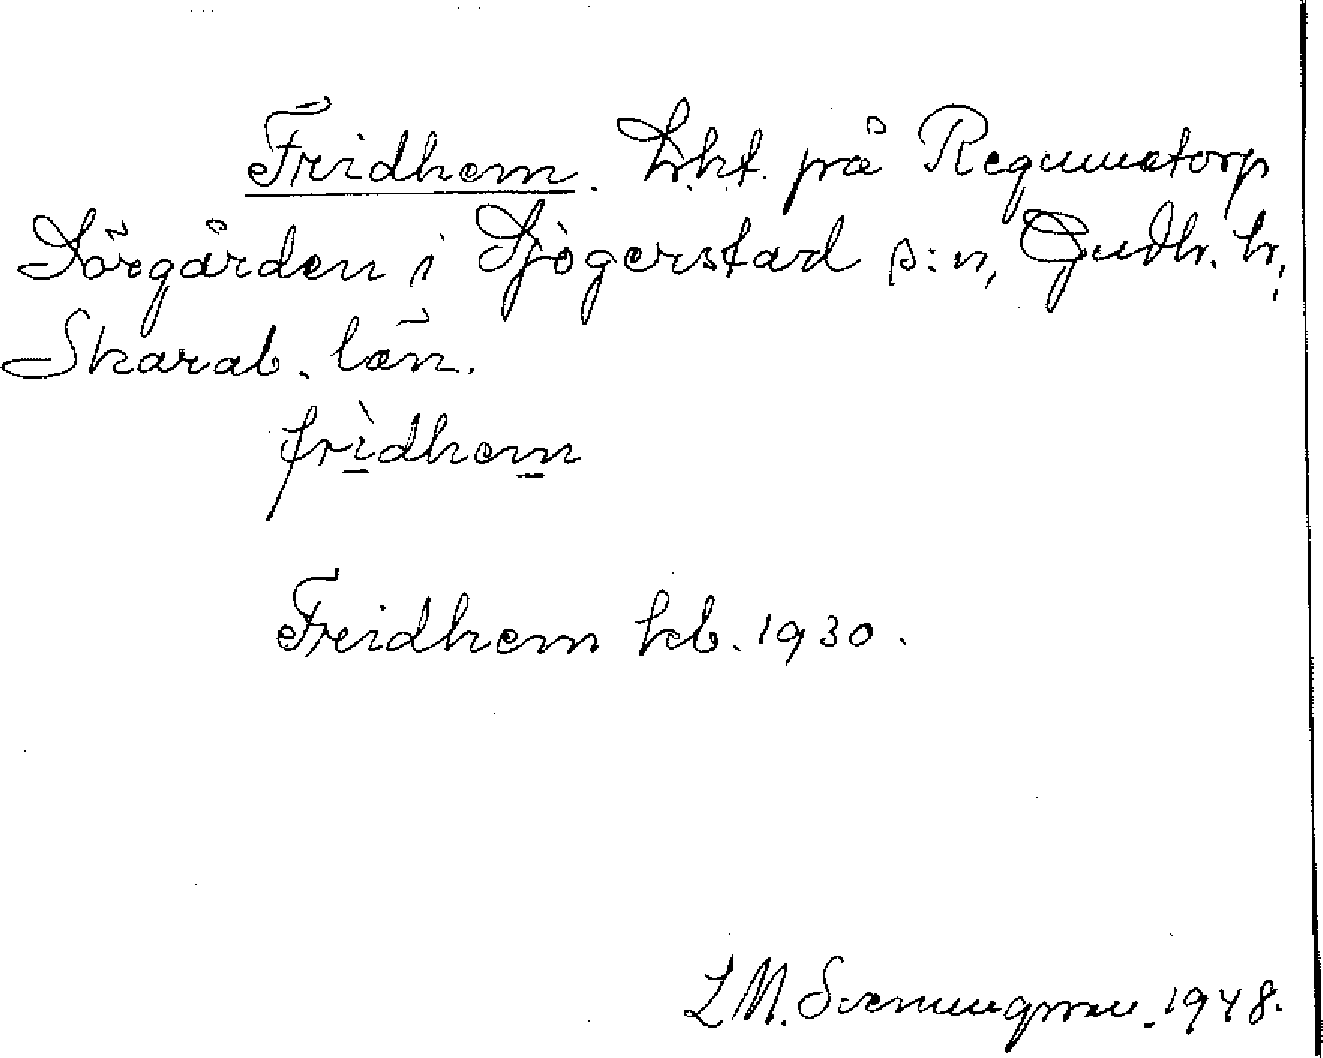 Fridhem. Lht. på Regumatorp
Sörgården i Sjogerstad s:n, Gudh. hd,
Skarab. län.
fridhem
Fridhem kb. 1930.
L M. Svenungsson. 1948.